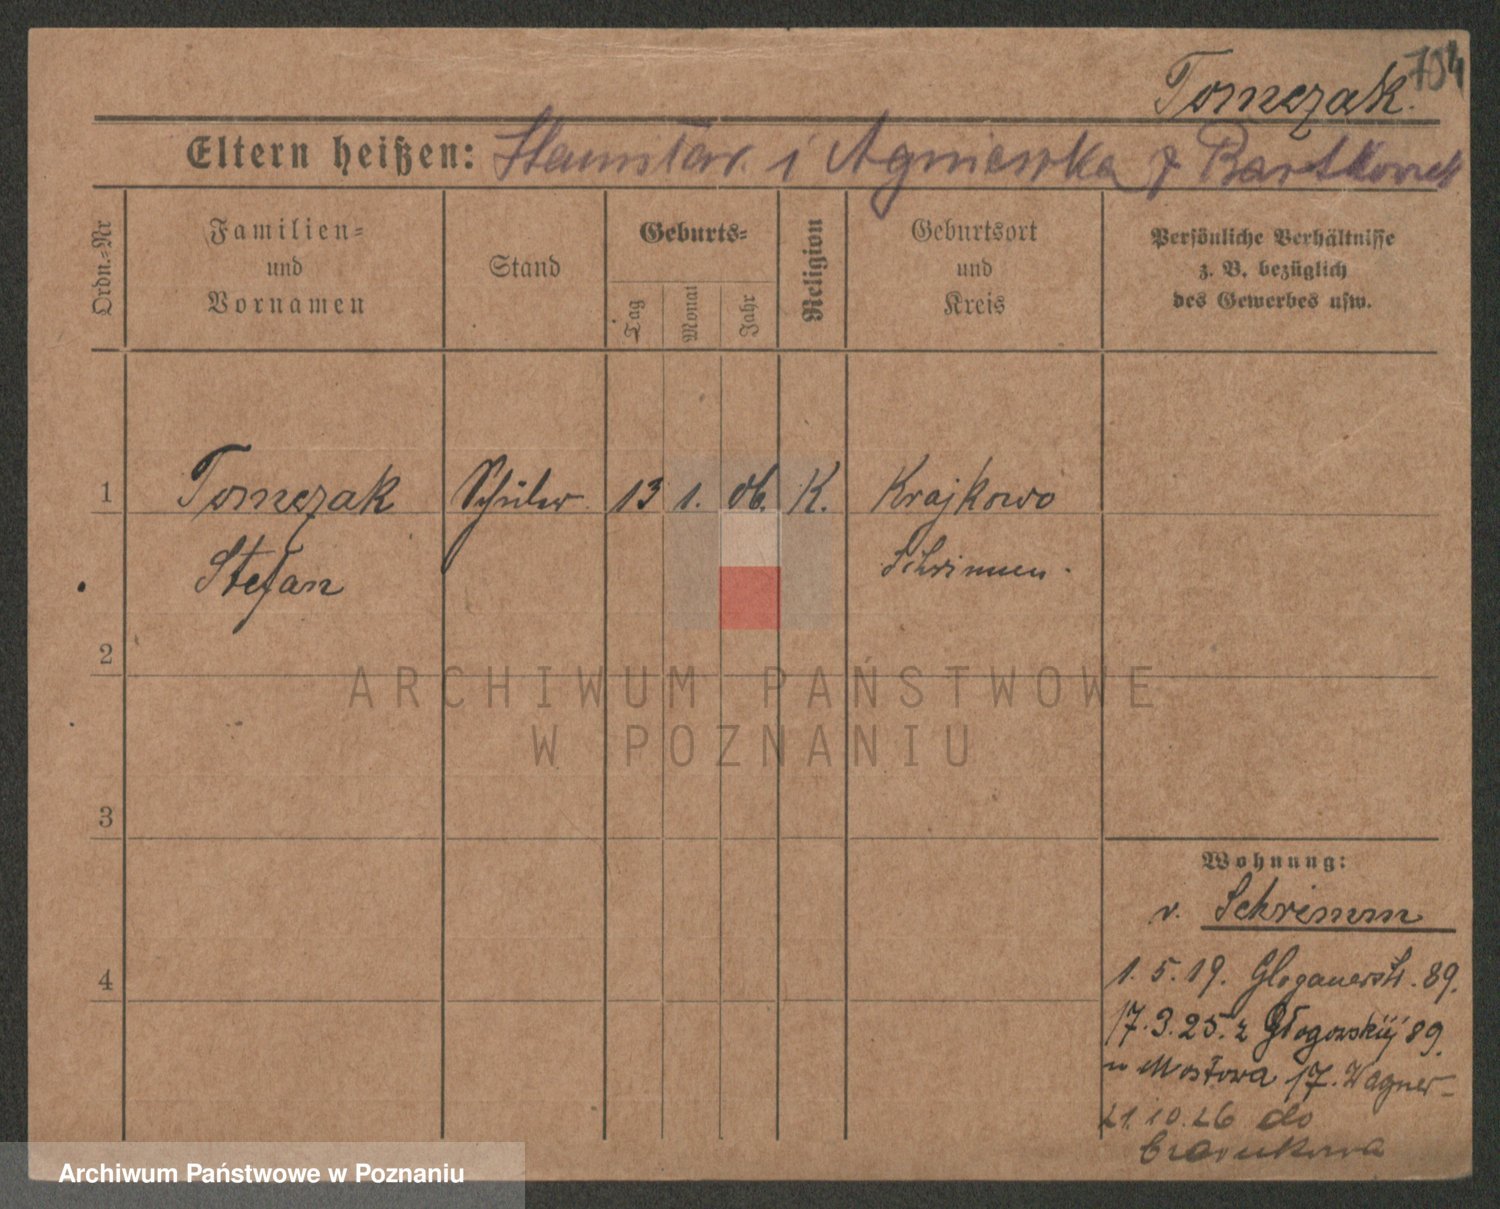 704
Tomczak.
Eltern heißen: Stanisław i Agnieszka z Bartkowiak
Ordn.-Nr
Familien-
und
Vornamen
Stand
Geburts-
Tag
Monat
Jahr
Religion
Geburtsort
und
Kreis
Persönliche Verhältnisse
z. B. bezüglich
des Gewerbes usw.
1 Tomczak Schüler 13 1. 06. K. Krajkowo
Stefan Schrimm.
2
ARCHIWUM PAŃSTWOWE
W POZNANIU
3
Wohnung:
v. Schrimm
4
1.5.19. Glogauerstr. 89.
17.3.25. z Głogowskiej 89.
n Mostowa 17. Wagner-
21.10.26 do
Czarnkowa
Archiwum Państwowe w Poznaniu